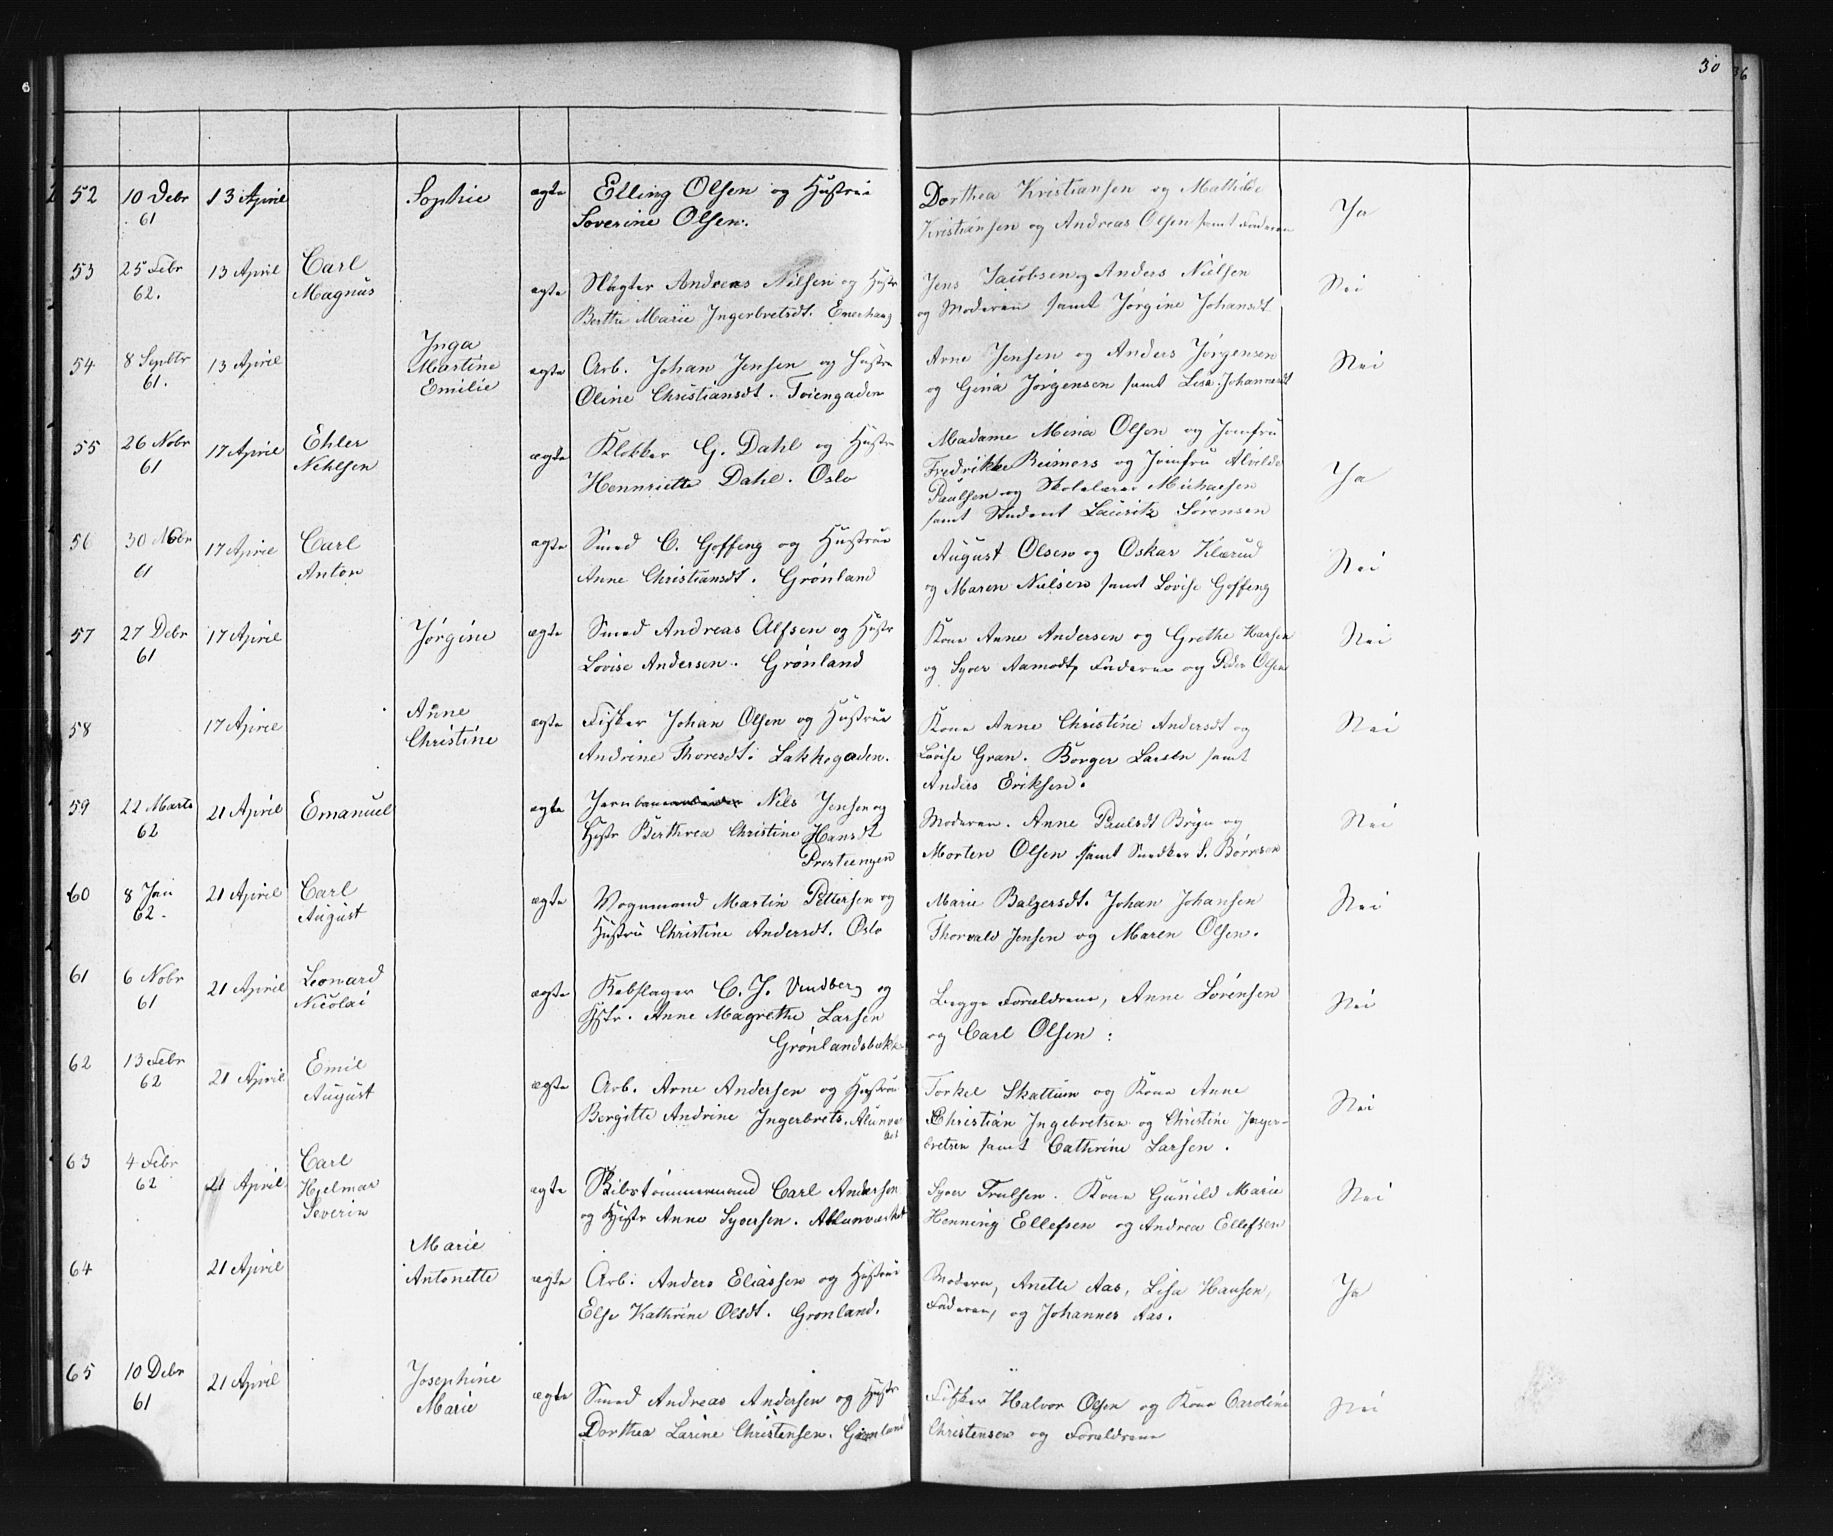 30
36
52 10 Debr 13 April Sophie ægte Elling Olsen og Hustrue Dorthea Kristiansen og Mathilde Ja
61 Soverine Olsen. Kristiansen og Andreas Olsen samt Faderen
53 25 Febr 13 April Carl ægte Slagter Andreas Nilsen og Hustr Jens Jacobsen og Anders Nielsen Nei
62. Magnus Berthe Marie Ingerbretsdt. Enerhaug og Moderen samt Jørgine Johansdt
54 8 Septbr 13 April Inga ægte Arb. Johan Jensen og Hustru Arne Jensen og Anders Jørgensen Nei
61. Martine Oline Christiansdt. Toiengaden og Gina Jørgensen samt Lisa Johannesdt
Emilie
55 26 Nobr 17 April Ehler ægte Klokker G. Dahl og Hustru Madame Mina Olsen og Jomfru Ja
61 Nehlsen Hennriette Dahl. Oslo Fredrikke Reimers og Jomfru Alvilde
Paulsen og Skolelærer Michaelsen
samt Student Lauritz Sørensen
56 30 Nobr 17 April Carl ægte Smed C. Goffeng og Hustrue August Olsen og Oskar Klærud Nei
61 Anton Anne Christiansdt. Grønland og Maren Nielsen samt Lovise Goffeng
57 27 Debr 17 April Jørgine ægte Smed Andreas Alfsen og Hustr Kone Anne Andersen og Grethe Hansen Nei
61 Lovise Andersen. Grønland og Syver Aamodt, Faderen og Peder Olsen
58 17 April Anne ægte Fisker Johan Olsen og Hustrue Kone Anne Christine Andersdt og Nei
Christine Andrine Thoresdt. Lakkegaden. Lovise Gran. Borger Larsen samt
Anders Eriksen.
59 22 Marts 21 April Emanuel ægte Jernbanearbeider Nils Jensen og Moderen. Anne Paulsdt Bryn og Nei
62 Hustr Berthrea Christine Hansdt Morten Olsen samt Snedker S. Børresen
Presteengen
60 8 Jan 21 April Carl ægte Vognmand Martin Pettersen og Marie Balzersdt. Johan Johansen Nei
62. August Hustru Christine Andersdt. Oslo Thorvald Jensen og Maren Olsen.
61 6 Nobr 21 April Leonard ægte Rebslager C. J. Vindberg og Begge Forældrene, Anne Sørensen Nei
61 Nicolai Hstr. Anne Magrethe Larsen og Carl Olsen :
Grønlandsbække
62 13 Febr 21 April Emil ægte Arb. Arne Andersen og Hustrue Torkel Skattum og Kone Anne Nei
62 August Bergitte Andrine Ingerbrets. Alunvær Christian Ingebretsen og Christine Inger-
ket bretsen samt Cathrine Larsen.
63 4 Febr 21 April Carl ægte Skibstømmermand Carl Andersen Syver Trulsen. Kone Gunild Marie Nei
62 Hjelmar og Hustr Anne Syversen. Allunværket Henning Ellefsen og Andrea Ellefsen
Severin
64 21 April Marie ægte Arb. Anders Eliassen og Hustrue Moderen, Anette Aas, Lisa Hansen, Ja
Antonette Else Kathrine Olsdt. Grønland. Faderen, og Johannes Aas.
65 10 Debr 21 April Josephine ægte Smed Andreas Andersen og Hustr Fisker Halvor Olsen og Kone Caroline Nei
61 Marie Dorthea Larine Christensen. Grønland Christensen og Forældrene